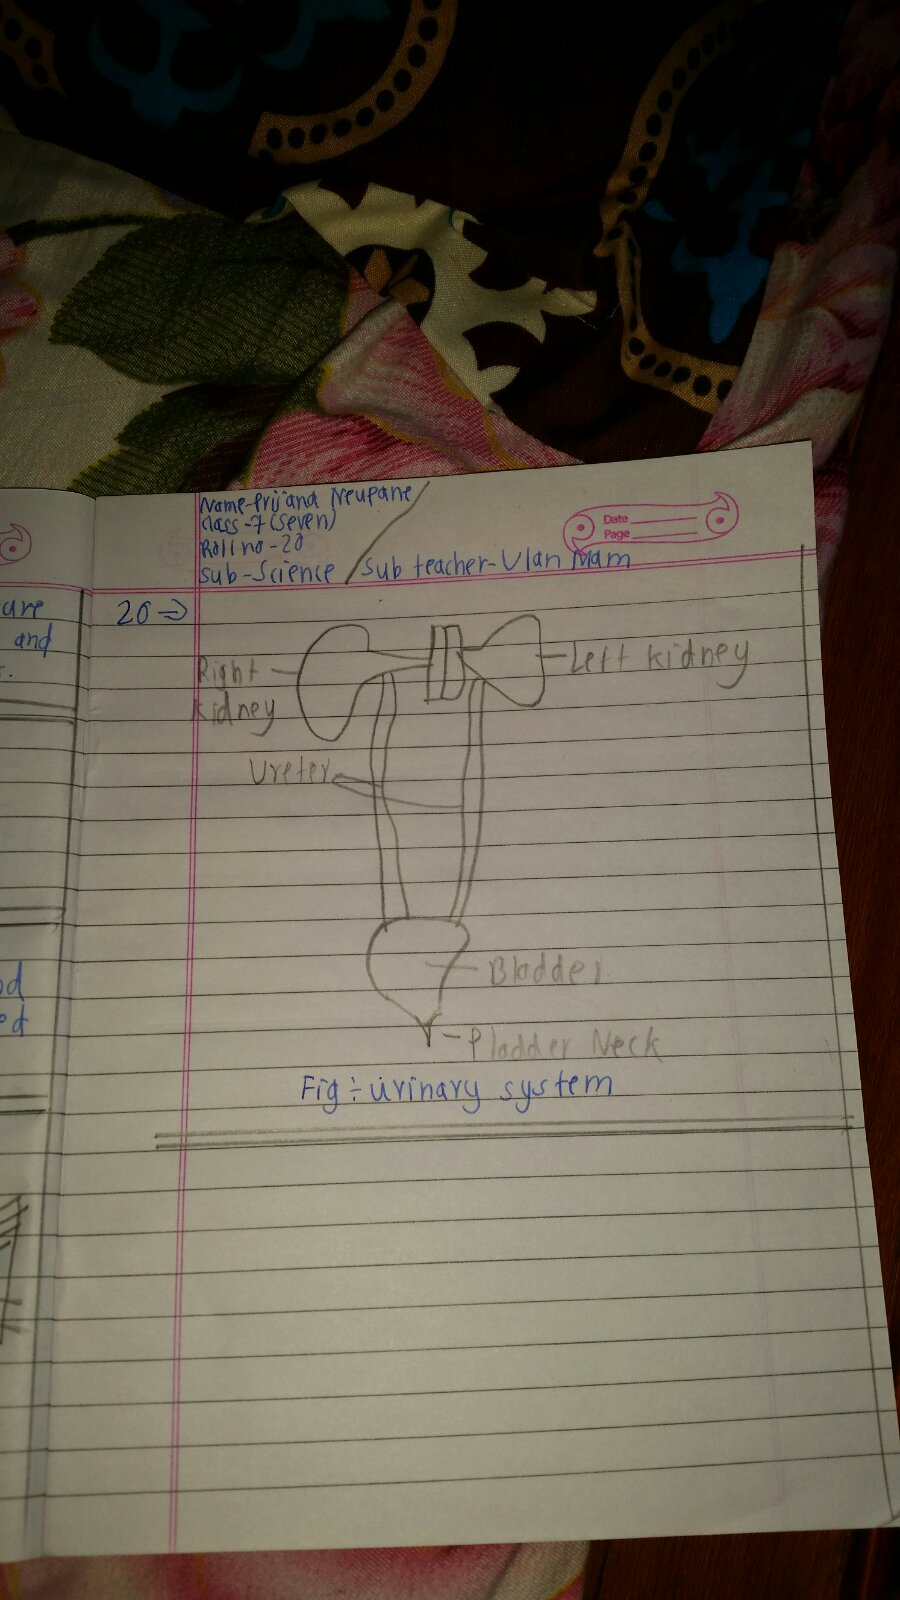 Name-Prijand Neupane
class-7 (seven)
Roll no-20
Sub-Science / Sub teacher-Ulan Mam
Date
Page
20⇒
Right
kidney
Left kidney
Ureter
Bladder
Pladder Neck
Fig÷urinary system
ure
and